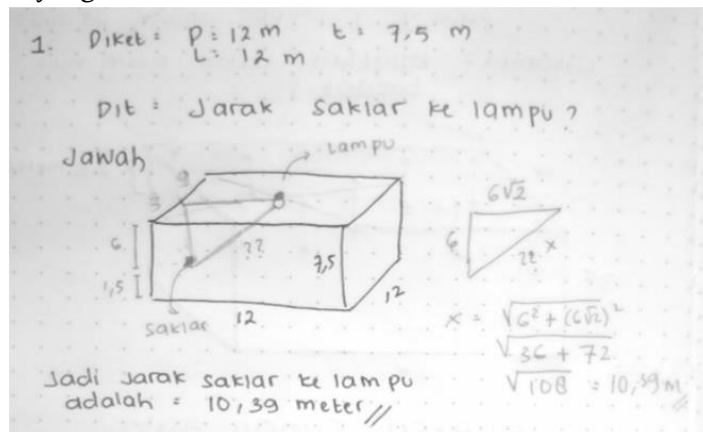 1. Diket : P = 12 m t = 7,5 m
L = 12 m
Dit : Jarak saklar ke lampu ?
Jawab
Lampu
6
1,5
??
7,5
12
12
saklar
6√2
6
??
x
x = √6² + (6√2)²
√36 + 72
√108 = 10,39 m
Jadi Jarak saklar ke lampu
adalah = 10,39 meter